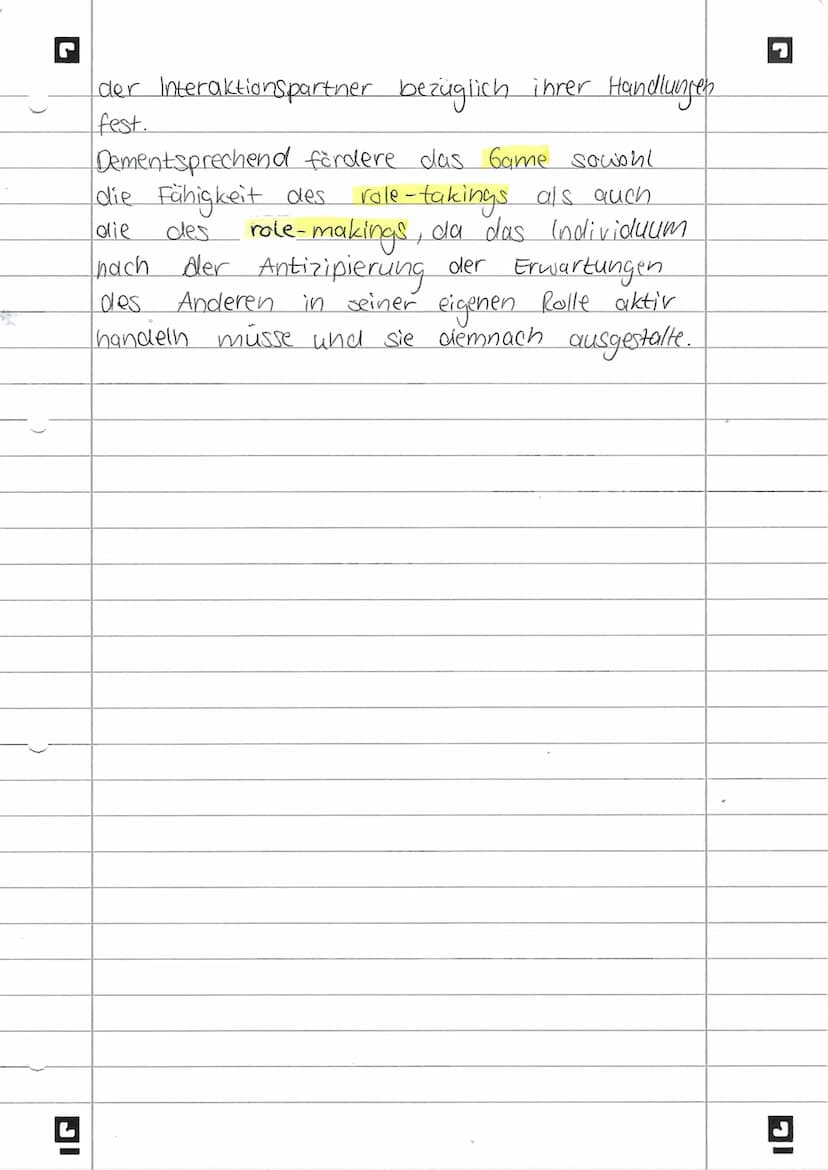 der Interaktionspartner bezüglich ihrer Handlungen
fest.
Dementsprechend fördere das Game sowohl
die Fähigkeit des role-takings als auch
die des role-makings, da das Individuum
nach der Antizipierung der Erwartungen
des Anderen in seiner eigenen Rolle aktiv
handeln müsse und sie demnach ausgestalte.